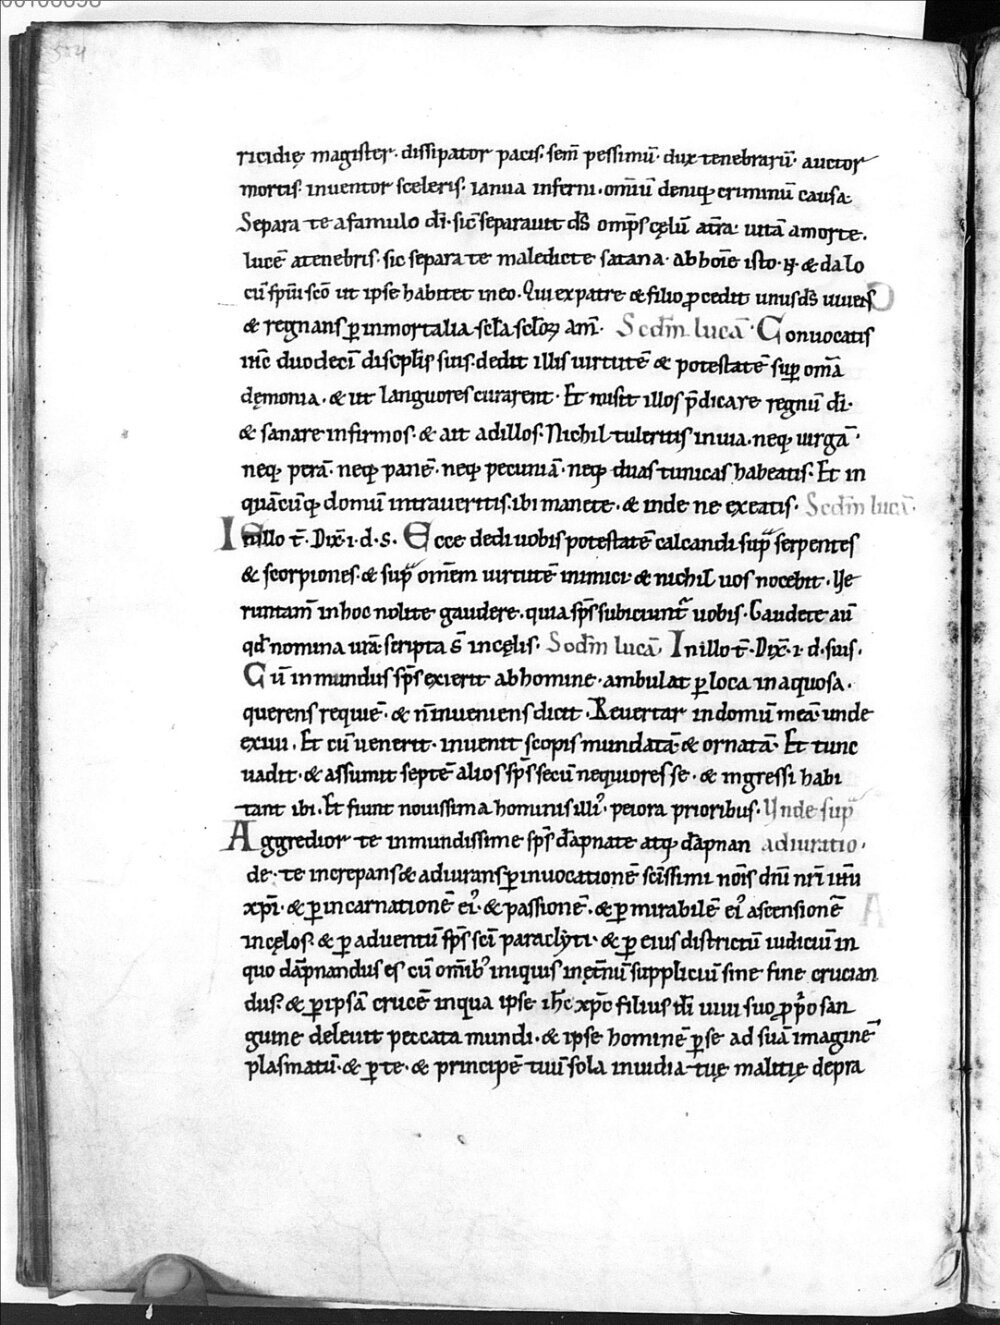 504
ricidię magister. dissipator pacis. sem̄ pessimū. dux tenebrarū. auctor
mortis. inuentor sceleris. ianua inferni. om̄iū deniq; criminū causa.
Separa te a famulo dī. sic̄ separauit ds̄ omp̄s cęlū a t̄ra. uitā a morte.
lucē a tenebris. sic separa te maledicte satana. ab hoīe isto. N. & da lo
cū sp̄ui sc̄o ut ipse habitet in eo. Qui ex patre & filio ꝓcedit unus ds̄ uiuens
& regnans ꝑ inmortalia sc̄la sc̄loꝝ. am̄. Scd̄m lucā. Conuocatis
ih̄c duodeci discipl̄is suis. dedit illis uirtutē & potestatē suꝑ om̄a
dęmonia. & ut languores curarent. Et misit illos p̄dicare regnū dī.
& sanare infirmos. & ait ad illos. Nichil tuleritis in uia. neq; uirgā.
neq; perā. neq; panē. neq; pecuniā. neq; duas tunicas habeatis. Et in
quācūq; domū intraueritis. ibi manete. & inde ne exeatis. Scd̄m lucā.
In illo t̄. Dix̄. i. d. s. Ecce dedi uobis potestatē calcandi sup̄ serpentes
& scorpiones. & sup̄ om̄em uirtutē inimici. & nichil uos nocebit. Ue
runtam̄ in hoc nolite gaudere. quia sp̄s subiciunt᷑ uobis. Gaudete aū
qd̄ nomina ur̄a scripta s̄ in cęlis. Scd̄m lucā. In illo t̄. Dix̄. i. d. suis.
Cū inmundus sp̄s exierit ab homine. ambulat ꝑ loca inaquosa.
querens requiē. & n̄ inueniens dicit. Reuertar in domū meā unde
exiui. Et cū uenerit. inuenit scopis mundatā & ornatā. Et tunc
uadit. & assumit septē alios sp̄s secū nequiores se. & ingressi habi
tant ibi. Et fiunt nouissima hominis illi᾿. peiora prioribus. Unde sup̄
Aggredior te inmundissime sp̄s dāpnate atq; dāpnan adiuratio.
de. te increpans & adiurans ꝑ inuocationē sc̄issimi nōis dn̄i nr̄i ih̄u
xp̄i. & ꝑ incarnationē ei᾿. & passionē. & ꝑ mirabilē ei᾿ ascensionē
in cęlos. & ꝑ aduentū sp̄s sc̄i paraclyti. & ꝑ eius districtū iudiciū in
quo dāpnandus es cū om̄ib᾿ iniquis in ęt̄nū suppliciū sine fine crucian
dus. & ꝑ ipsā crucē in qua ipse ih̄c xp̄c filius dī uiui suo ꝓp̄o san
guine deleuit peccata mundi. & ipse hominē ꝑ se ad suā imaginē
plasmatū. & ꝑ te. & principē tuū sola inuidia tuę malitię depra